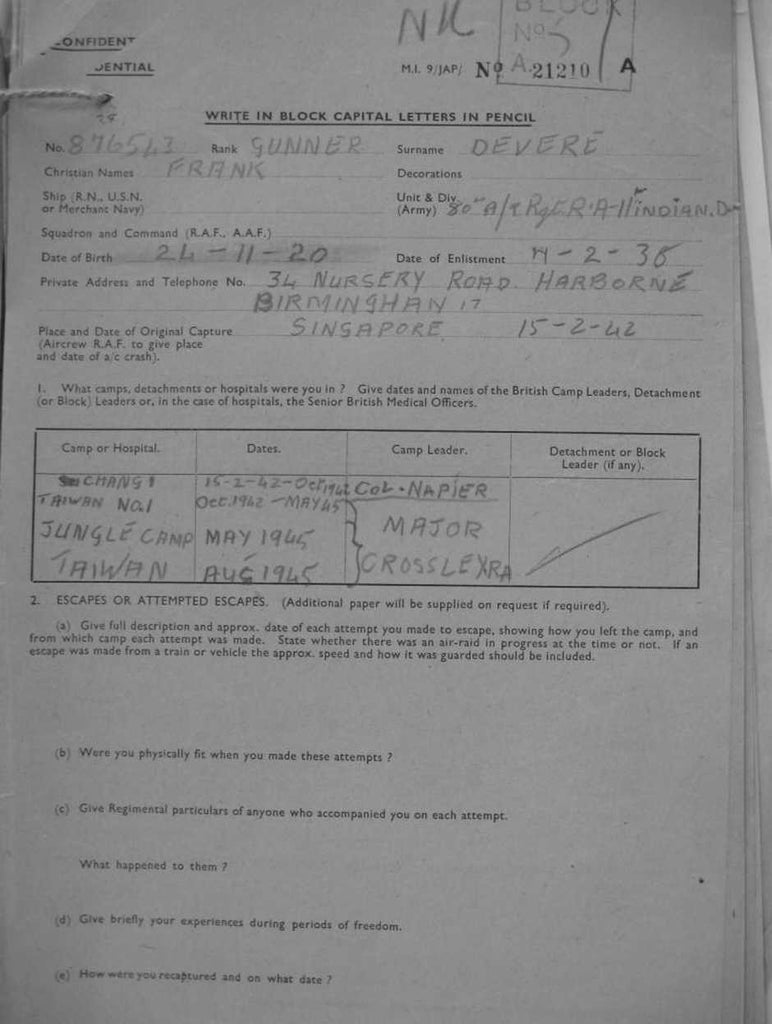 CONFIDENT
DENTIAL
NK
BLOCK
No 5
M.I. 9/JAP/ No A.21210 A
WRITE IN BLOCK CAPITAL LETTERS IN PENCIL
No. 876543 Rank GUNNER Surname DEVERE
Christian Names FRANK Decorations
Ship (R.N., U.S.N. or Merchant Navy)
Unit & Div. (Army) 80th A/T Rgt R.A. 11 INDIAN. Div
Squadron and Command (R.A.F., A.A.F.)
Date of Birth 24-11-20 Date of Enlistment -2-38
Private Address and Telephone No. 34 NURSERY ROAD. HARBORNE
BIRMINGHAM 17
Place and Date of Original Capture SINGAPORE 15-2-42
(Aircrew R.A.F. to give place
and date of a/c crash).
1. What camps, detachments or hospitals were you in ? Give dates and names of the British Camp Leaders, Detachment
(or Block) Leaders or, in the case of hospitals, the Senior British Medical Officers.
Camp or Hospital. Dates. Camp Leader. Detachment or Block
Leader (if any).
CHANGI 15-2-42-Oct 1942 COL. NAPIER
TAIWAN NO.1 Oct. 1942 - MAY 45
JUNGLE CAMP MAY 1945 MAJOR
TAIWAN AUG 1945 CROSSLEY RA
2. ESCAPES OR ATTEMPTED ESCAPES. (Additional paper will be supplied on request if required).
(a) Give full description and approx. date of each attempt you made to escape, showing how you left the camp, and
from which camp each attempt was made. State whether there was an air-raid in progress at the time or not. If an
escape was made from a train or vehicle the approx. speed and how it was guarded should be included.
(b) Were you physically fit when you made these attempts ?
(c) Give Regimental particulars of anyone who accompanied you on each attempt.
What happened to them ?
(d) Give briefly your experiences during periods of freedom.
(e) How were you recaptured and on what date ?